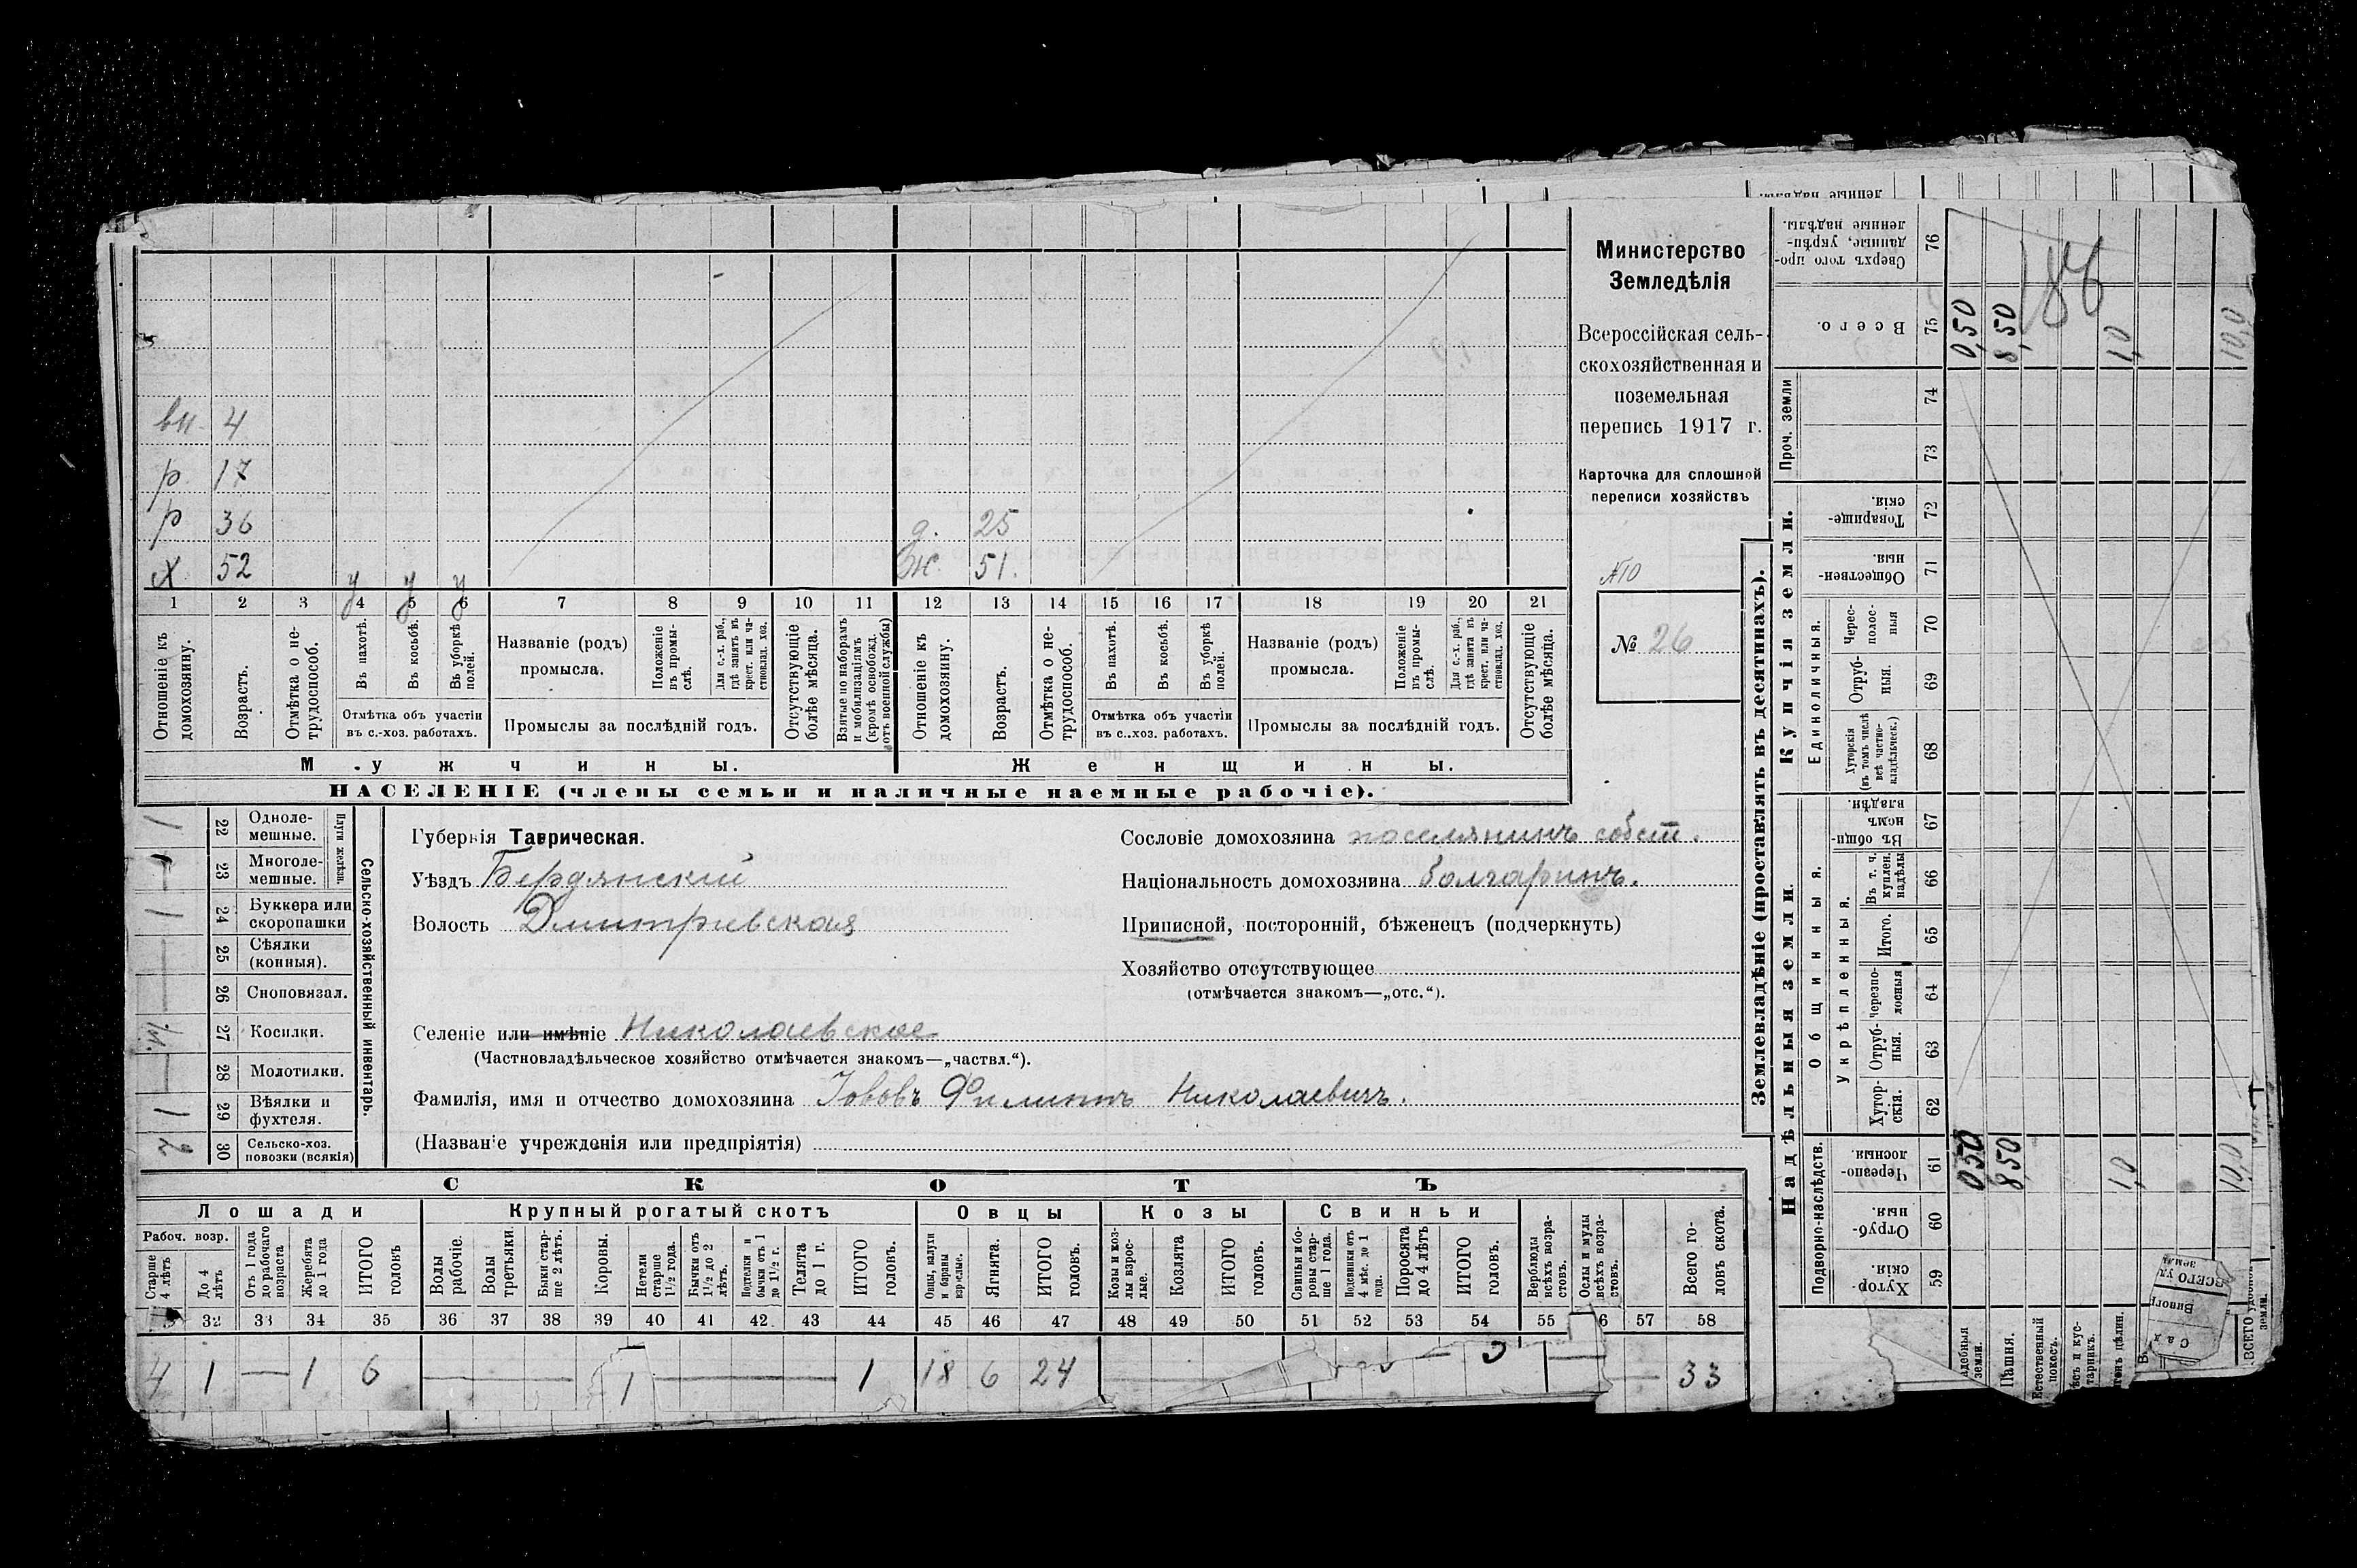 вн. 4
р. 17
р 36
д. 25
Х. 52 у у у
Ж. 51.
1 2 3 4 5 6 7 8 9 10 11 12 13 14 15 16 17 18 19 20 21
Отношеніе къ домохозяину.
Возрастъ.
Отмѣтка о нетрудоспособ.
Въ пахотѣ.
Въ косьбѣ.
Въ уборкѣ полей.
Отмѣтка объ участіи
въ с.-хоз. работахъ.
Названіе (родъ)
промысла.
Положеніе въ промыслѣ.
Для с.-х. раб., гдѣ занятъ въ крест. или частновлад. хоз.
Промыслы за послѣдній годъ.
Отсутствующіе болѣе мѣсяца.
Взятые по наборамъ и мобилизаціямъ (кромѣ освобожд. отъ военной службы)
Отношеніе къ домохозяину.
Возрастъ.
Отмѣтка о нетрудоспособ.
Въ пахотѣ.
Въ косьбѣ.
Въ уборкѣ полей.
Отмѣтка объ участіи
въ с.-хоз. работахъ.
Названіе (родъ)
промысла.
Положеніе въ промыслѣ.
Для с.-х. раб., гдѣ занята въ крест. или частновлад. хоз.
Промыслы за послѣдній годъ.
Отсутствующіе болѣе мѣсяца.
Мужчины.
Женщины.
НАСЕЛЕНІЕ (члены семьи и наличные наемные рабочіе).
Министерство
Земледѣлія
Всероссійская сель-
скохозяйственная и
поземельная
перепись 1917 г.
Карточка для сплошной
переписи хозяйствъ
№10
№ 26
Сельско-хозяйственный инвентарь.
Плуги желѣзн.
22 Одноле-
мешные. 1
23 Многоле-
мешные. 1
24 Буккера или
скоропашки 1
25 Сѣялки
(конныя). —
26 Сноповязал. —
27 Косилки.
28 Молотилки. —
29 Вѣялки и
фухтеля. 1
30 Сельско-хоз.
повозки (всякія) 2
Губернія Таврическая.
Уѣздъ Бердянскій
Волость Дмитріевская
Селеніе или имѣніе Николаевское
(Частновладѣльческое хозяйство отмѣчается знакомъ—„частвл.“).
Фамилія, имя и отчество домохозяина Іововъ Филиппъ Николаевичъ.
(Названіе учрежденія или предпріятія)
Сословіе домохозяина поселянинъ собст.
Національность домохозяина болгаринъ.
Приписной, посторонній, бѣженецъ (подчеркнуть)
Хозяйство отсутствующее
(отмѣчается знакомъ—„отс.“).
СКОТЪ
Лошади
Крупный рогатый скотъ
Овцы
Козы
Свиньи
Рабоч. возр.
Старше 4 лѣтъ
До 4 лѣтъ
Отъ 1 года до рабочаго возраста
Жеребята до 1 года
ИТОГО головъ
Волы рабочіе.
Волы третьяки
Быки старше 2 лѣтъ.
Коровы.
Нетели старше 1½ года.
Бычки отъ 1½ до 2 лѣтъ.
Подтелки и бычки отъ 1 до 1½ г.
Телята до 1 г.
ИТОГО головъ.
Овцы, валухи и бараны взрослые.
Ягнята.
ИТОГО головъ.
Козы и козлы взрослые.
Козлята
ИТОГО головъ.
Свиньи и боровы старше 1 года.
Подсвинки отъ 4 мѣс. до 1 года.
Поросята до 4 лѣтъ
ИТОГО головъ.
Верблюды всѣхъ возрастовъ.
Ослы и мулы всѣхъ возрастовъ.
Всего головъ скота.
32 33 34 35 36 37 38 39 40 41 42 43 44 45 46 47 48 49 50 51 52 53 54 55 6 57 58
4 1 — 1 6 1 1 18 6 24 33
Землевладѣніе (проставлять въ десятинахъ).
Надѣльныя земли.
Купчія земли.
Проч. земли
Подворно-наслѣдств.
Общинныя.
Укрѣпленныя.
Единоличныя.
Хутор-
скія. 59
Отруб-
ныя. 60
Черезпо-
лосныя. 61
Хутор-
скія. 62
Отруб-
ныя. 63
Черезпо-
лосныя 64
Итого. 65
Въ т. ч. куплен. надѣлы 66
Въ общи-
номъ
владѣн. 67
Хуторскія (въ томъ числѣ всѣ частновладѣльческ.) 68
Отруб-
ныя. 69
Черес-
полос-
ныя 70
Обществен-
ныя. 71
Товарище-
скія. 72
73
74
Всего. 75
Сверхъ того про-
данные, укрѣп-
ленные надѣлы. 76
0,50 8,50 1,0 10,0
186
050 8,50 1,0 10,0
адебныя
земли.
Пашня.
Естественный
покосъ.
ѣсъ и кус-
тарникъ.
Сад
Виногр
ВСЕГО уд
земли
ВСЕГО
земли.